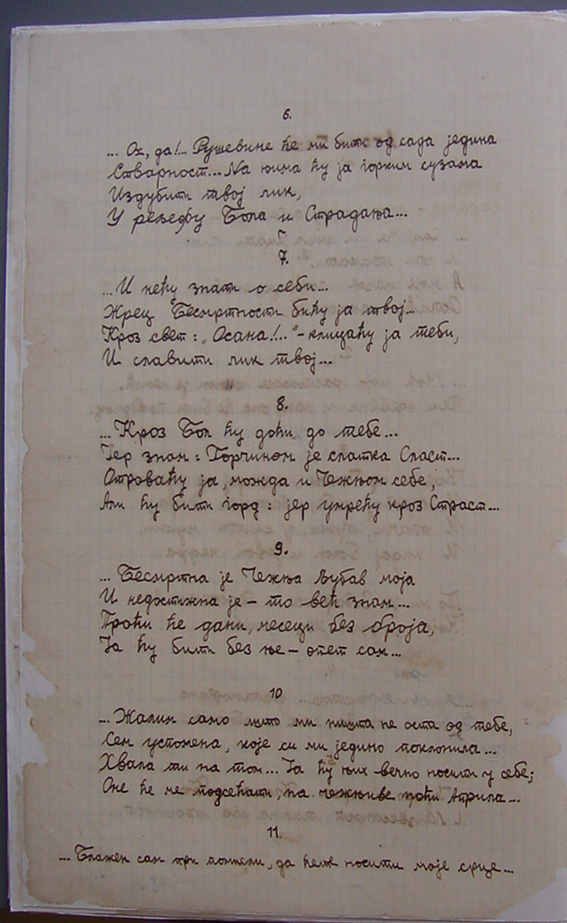 6.
... Ох, да!... Рушевине ће ми бити од сада једина
Стварност... На њима ћу ја горким сузама
Издубити твој лик,
У рељефу Бола и Страдања...
7.
... И нећу знати о себи...
Жрец Бесмртности бићу ја твој...
Кроз свет: „Осана!..." - клицаћу ја теби,
И славити лик твој...
8.
... Кроз Бол ћу доћи до тебе...
Јер знам: Горчином је слатка Сласт...
Отроваћу ја, можда и Чежњом себе,
Али ћу бити горд: јер умрећу кроз Страст...
9.
... Бесмртна је Чежња Љубав моја
И недостижна је - то већ знам...
Проћи ће дани, месеци без броја,
Ја ћу бити без ње - опет сам...
10
... Жалим само што ми ништа не оста од тебе,
Сем успомена, које си ми једино поклонила...
Хвала ти на том... Ја ћу њих вечно носити у себе;
Оне ће ме подсећати, на чежњиве ноћи Априла...
11.
... Блажен сам при помисли, да ћеш носити моје срце...